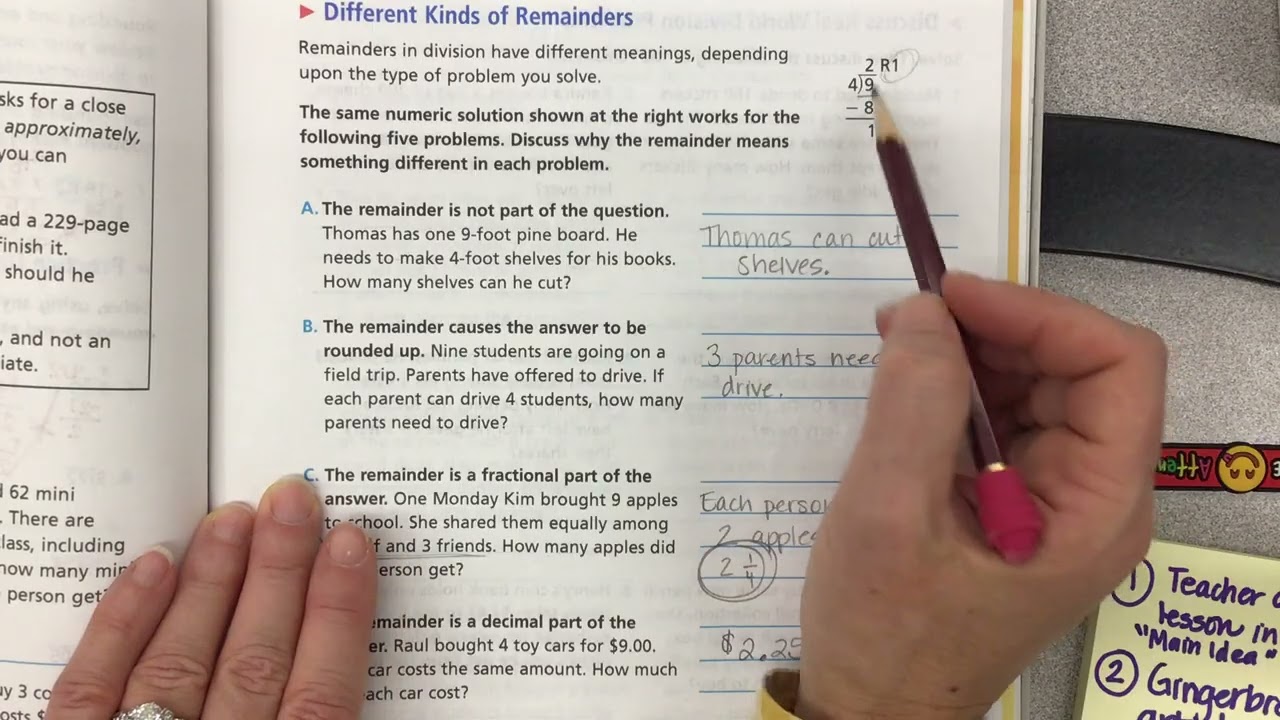 ▶ Different Kinds of Remainders
Remainders in division have different meanings, depending
upon the type of problem you solve.
The same numeric solution shown at the right works for the
following five problems. Discuss why the remainder means
something different in each problem.
2 R1
4)9
− 8
1
A. The remainder is not part of the question.
Thomas has one 9-foot pine board. He
needs to make 4-foot shelves for his books.
How many shelves can he cut?
Thomas can cut
shelves.
B. The remainder causes the answer to be
rounded up. Nine students are going on a
field trip. Parents have offered to drive. If
each parent can drive 4 students, how many
parents need to drive?
3 parents need
drive.
C. The remainder is a fractional part of the
answer. One Monday Kim brought 9 apples
to school. She shared them equally among
f and 3 friends. How many apples did
erson get?
Each person
2 apples
2 1/4
emainder is a decimal part of the
er. Raul bought 4 toy cars for $9.00.
car costs the same amount. How much
ach car cost?
$2.25
sks for a close
approximately,
you can
ad a 229-page
finish it.
should he
, and not an
iate.
62 mini
. There are
lass, including
how many min
person get?
uy 3 co
osts $
Atten
1 Teacher
lesson in
"Main Idea"
2 Gingerbr